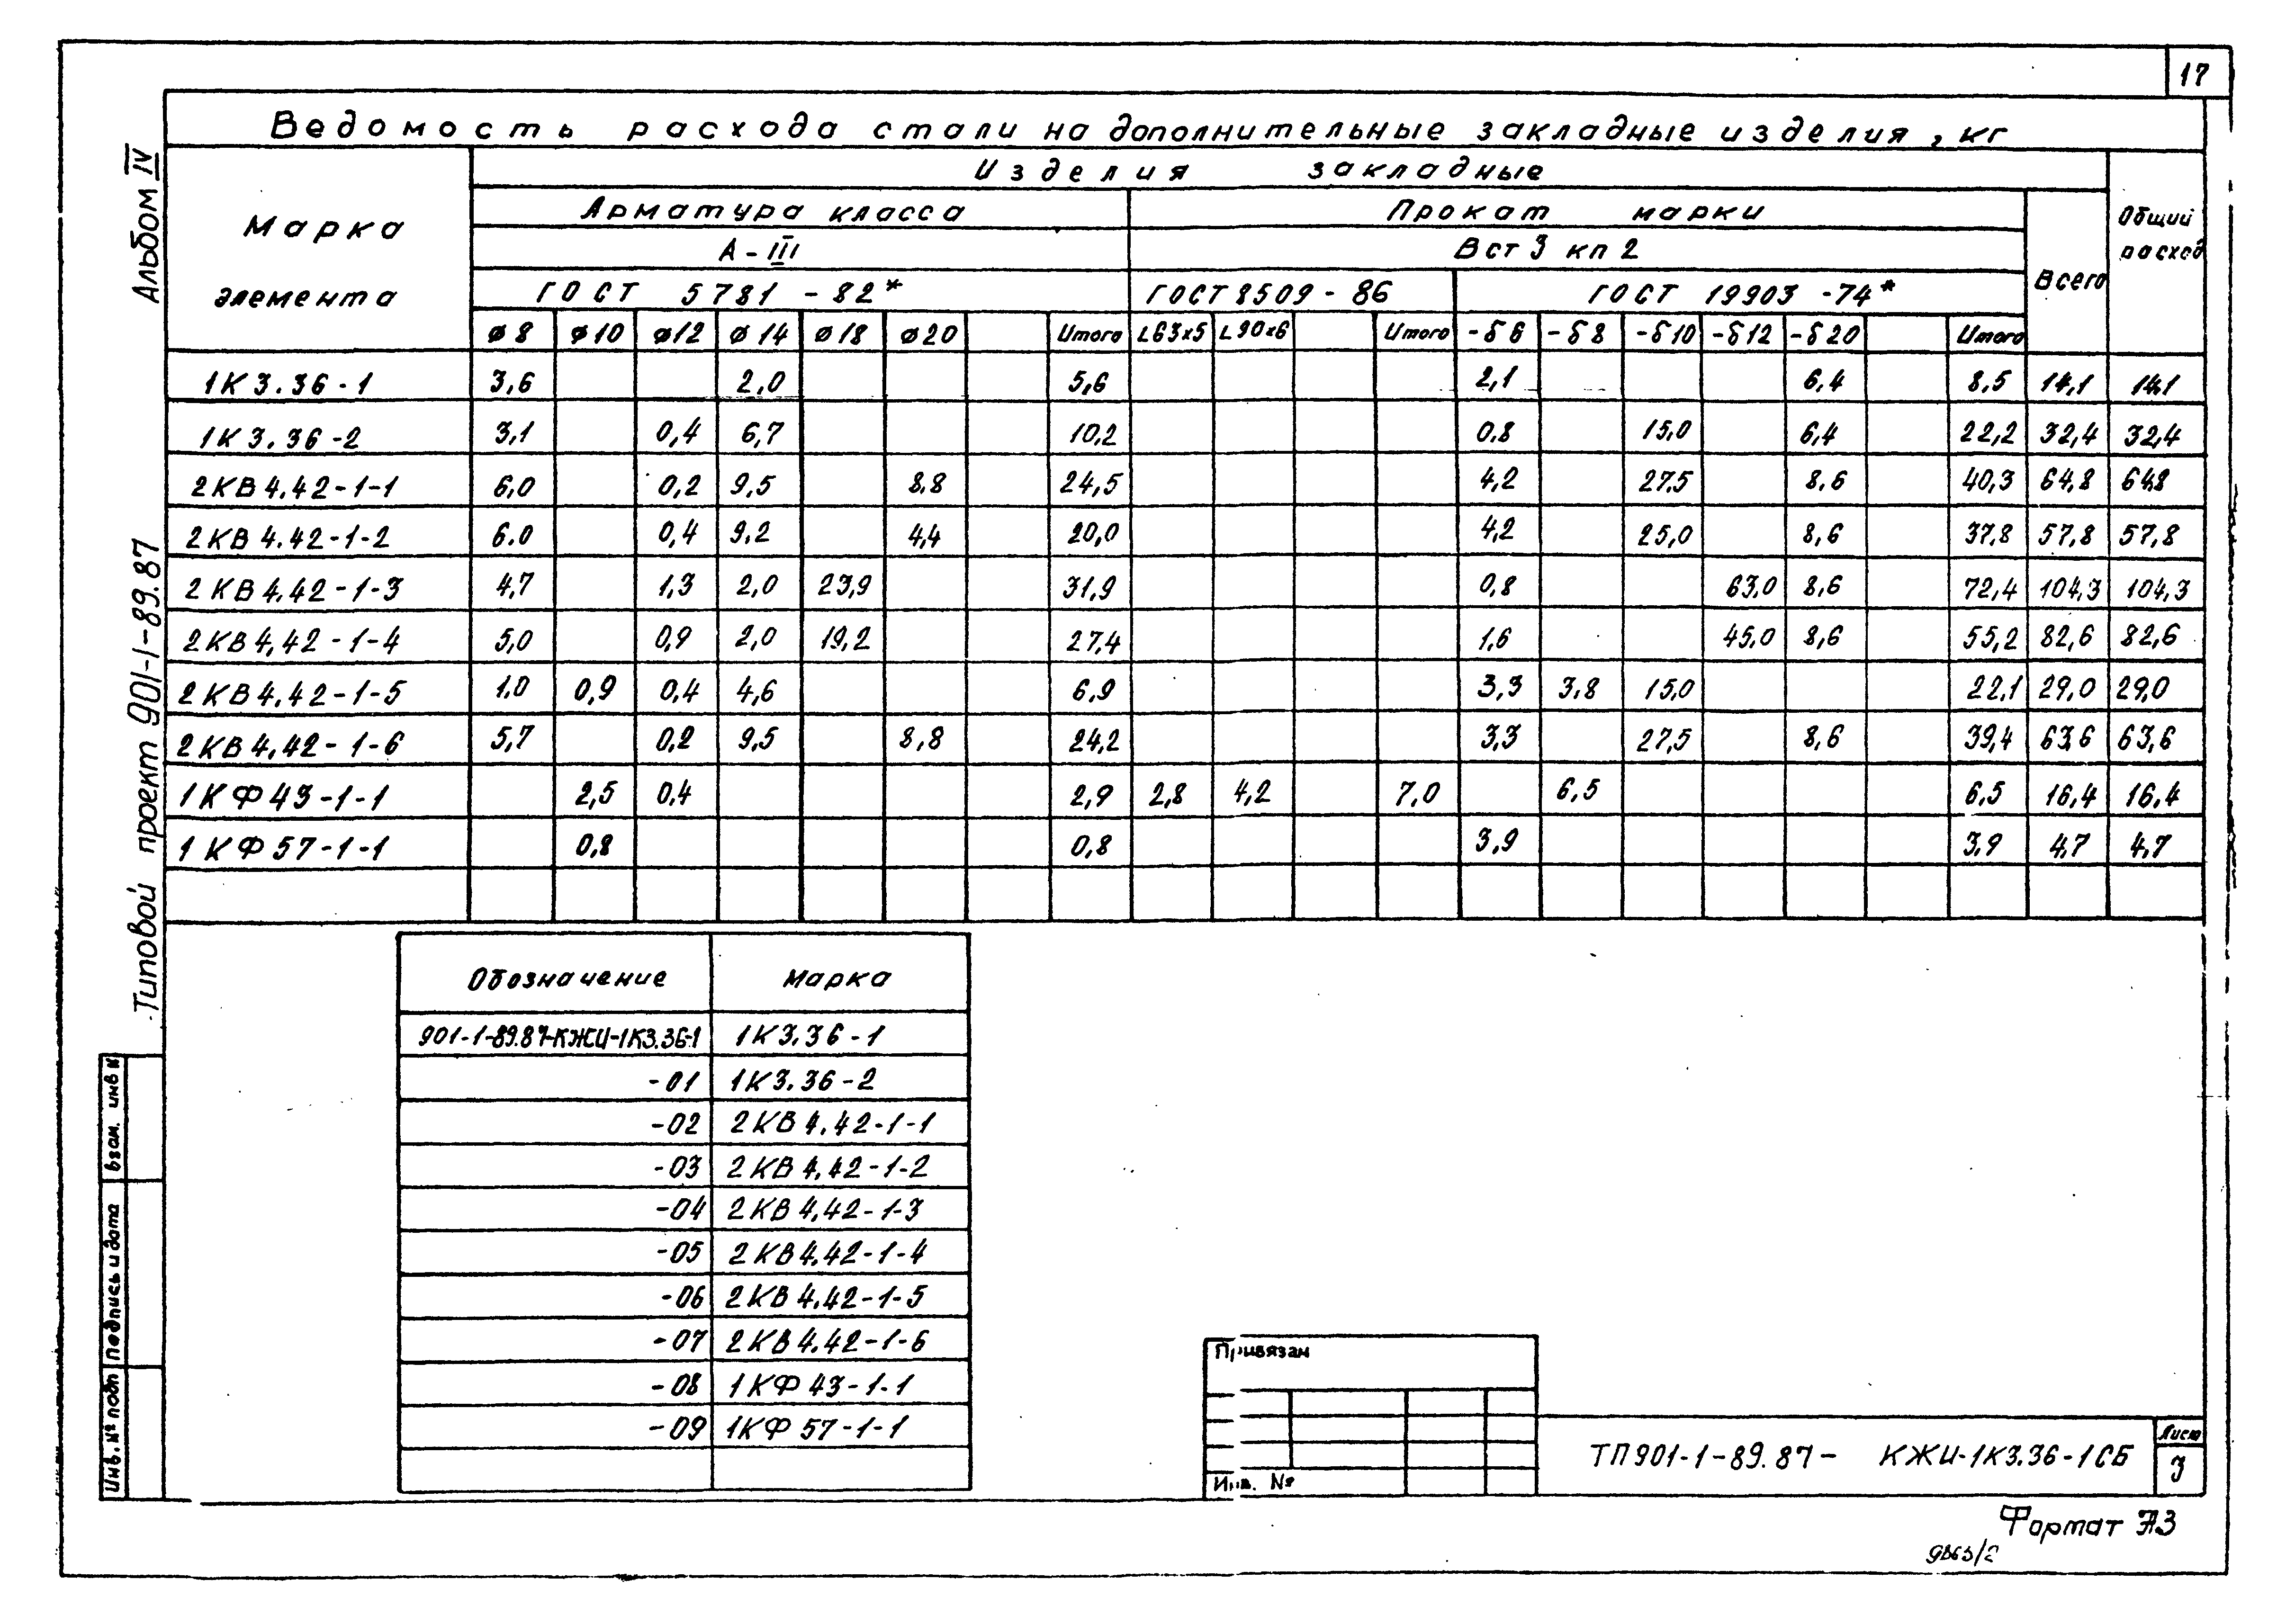 17
Ведомость расхода стали на дополнительные закладные изделия, кг
Марка элемента
Изделия закладные
Общий расход
Арматура класса
Прокат марки
Всего
А-III
Вст3 кп2
ГОСТ 5781-82*
ГОСТ 8509-86
ГОСТ 19903-74*
ø8 ø10 ø12 ø14 ø18 ø20 Итого L63х5 L90х6 Итого -δ6 -δ8 -δ10 -δ12 -δ20 Итого
1К3.36-1 3,6 2,0 5,6 2,1 6,4 8,5 14,1 14,1
1К3.36-2 3,1 0,4 6,7 10,2 0,8 15,0 6,4 22,2 32,4 32,4
2КВ4.42-1-1 6,0 0,2 9,5 8,8 24,5 4,2 27,5 8,6 40,3 64,8 64,8
2КВ4.42-1-2 6.0 0,4 9,2 4,4 20,0 4,2 25,0 8,6 37,8 57,8 57,8
2КВ4.42-1-3 4,7 1,3 2,0 23,9 31,9 0,8 63,0 8,6 72,4 104,3 104,3
2КВ4,42-1-4 5,0 0,9 2,0 19,2 27,4 1,6 45,0 8,6 55,2 82,6 82,6
2КВ4.42-1-5 1,0 0,9 0,4 4,6 6,9 3,3 3,8 15,0 22,1 29,0 29,0
2КВ4,42-1-6 5,7 0,2 9,5 8,8 24,2 3,3 27,5 8,6 39,4 63,6 63,6
1КФ43-1-1 2,5 0,4 2,9 2,8 4,2 7,0 6,5 6,5 16,4 16,4
1КФ57-1-1 0,8 0,8 3,9 3,9 4,7 4,7
Обозначение Марка
901-1-89.87-КЖИ-1К3.36-1 1К3.36-1
-01 1К3.36-2
-02 2КВ4.42-1-1
-03 2КВ4.42-1-2
-04 2КВ4.42-1-3
-05 2КВ4.42-1-4
-06 2КВ4.42-1-5
-07 2КВ4.42-1-6
-08 1КФ43-1-1
-09 1КФ57-1-1
Альбом IV
Типовой проект 901-1-89.87
Взам. инв N
Подпись и дата
Инв. № подп
Привязан
Инв. №
ТП901-1-89.87- КЖИ-1К3.36-1СБ
Лист
3
Формат А3